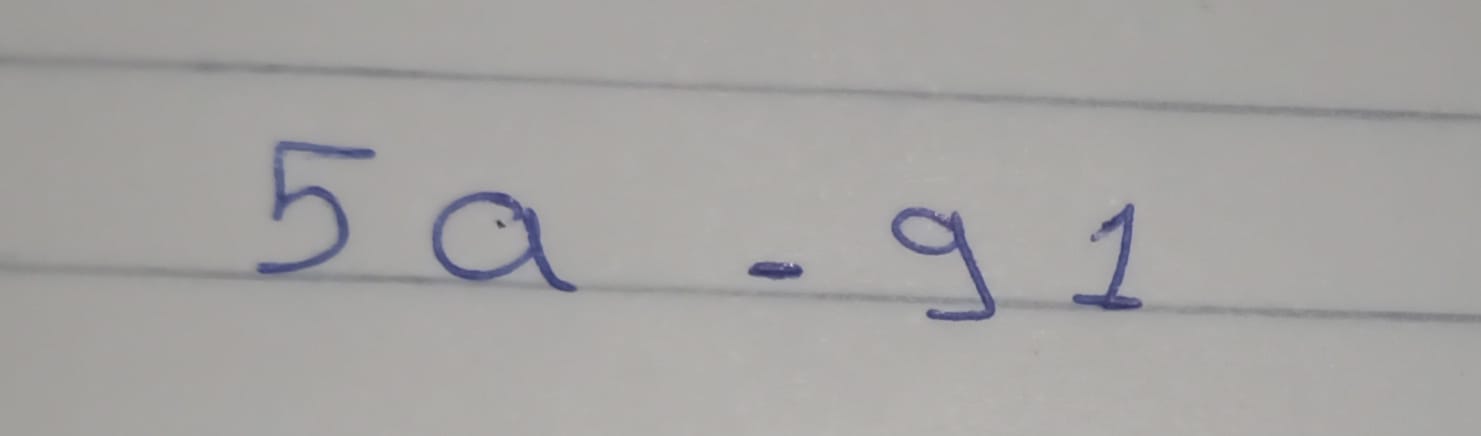 5a - 91